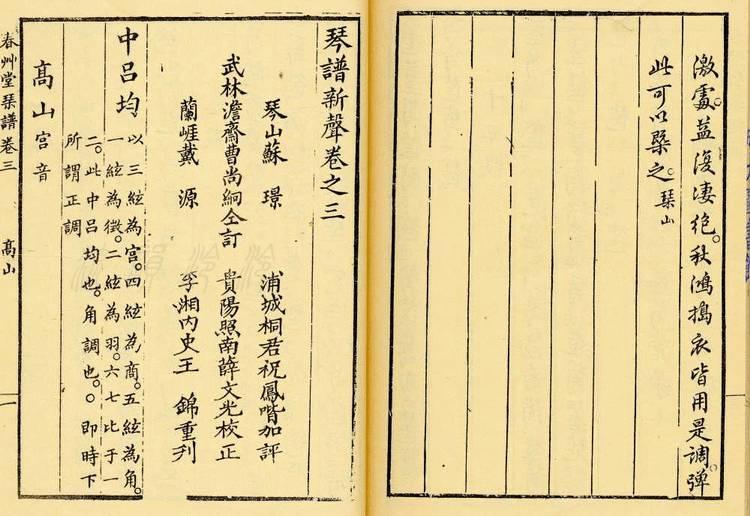 激處。益復凄絶。秋鴻搗衣皆用是調。彈
此可以槩之。琹山
琴譜新聲卷之三
琴山蘇 璟 浦城桐君祝鳳喈加評
武林澹齋曹尚絅仝訂 貴陽照南薛文光校正
蘭崕戴 源 湘内史王 錦重列
中呂均
以三絃為宮。四絃為商。五絃為角。
一絃為徵。二絃為羽。六七比于一
二。此中呂均也。角調也。○即時下
所謂正調
高山宮音
春艸堂琹譜卷三 高山 一